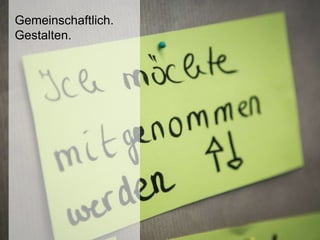 Gemeinschaftlich.
Gestalten.
Ich möchte
mitgenommen
werden